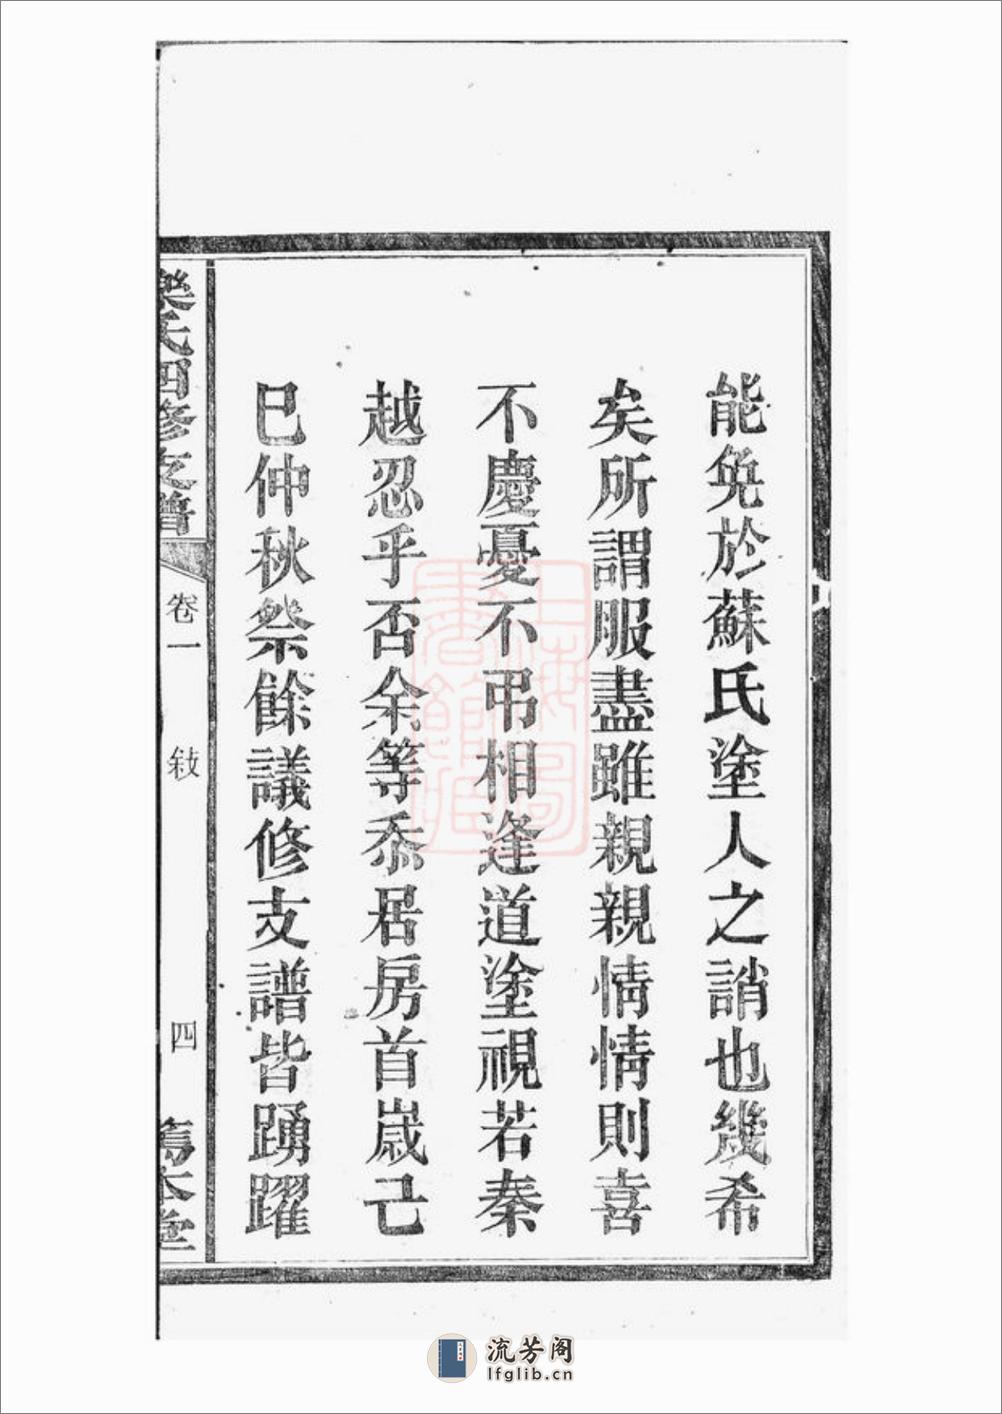 能免於蘇氏塗人之誚也幾希
矣所謂服盡雖親親情情則喜
不慶憂不弔相逢道塗視若秦
越忍乎否余等忝居房首歲己
巳仲秋祭餘議修支譜皆踴躍
樂氏四修支譜
卷一
敍
四
篤本堂
上海圖書館藏
流芳阁
lfglib.cn